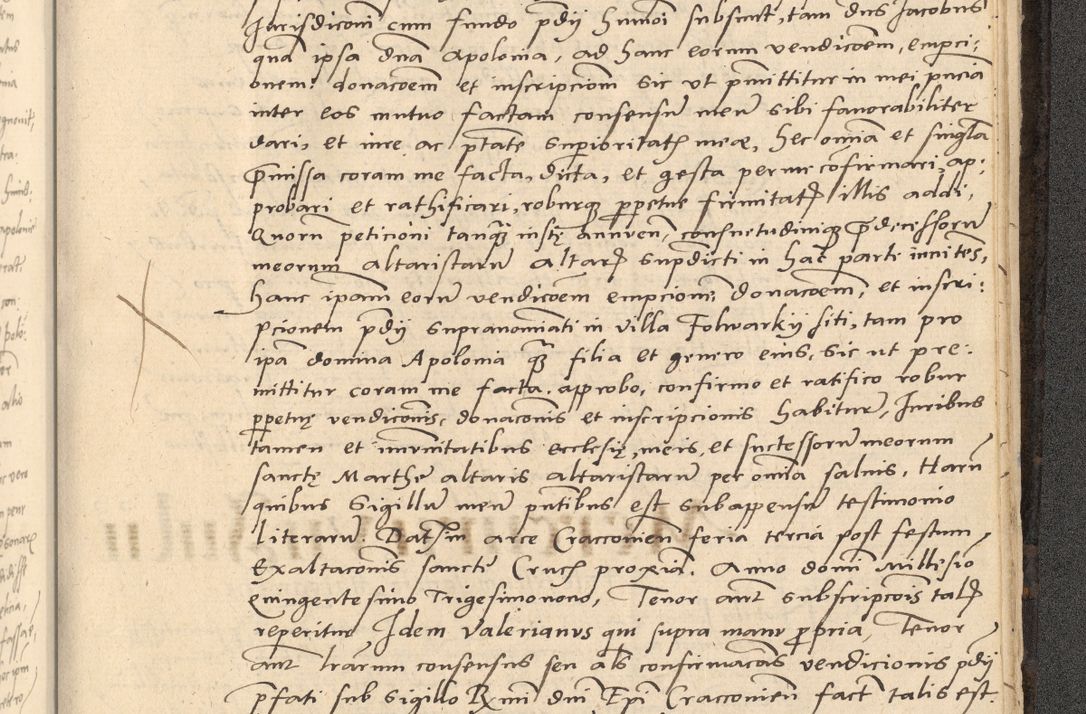 Jurisdiconi cum fundo pdij humoi subsunt, tam dns Jacobus
qua ipsa dna Apolonia, ad hanc eorum vendicoem, empci-
onem, donacoem et inscripciom sic vt pmittitur in mei pncia
inter eos mutuo factam consensu meu sibi favorabiliter
dari, et iure ac ptate superioritatis meae, hec omia et singla
pmissa coram me facta, dicta, et gesta per me cofirmari, ap-
probari et rathificari, roburque perpetue firmitatis illis addi,
Quoru peticioni tanq iuste annuen, consuetudinique predecessoru
meorum altaristaru altaris supdicti in hac parte innites,
hanc ipam eoru vendicoem empcionem donacoem, et inscri-
pcionem pdij supranominati in villa Folwarkij siti, tam pro
ipa domina Apolonia q filia et genero eius, sic ut pre-
mittitur coram me facta, approbo, confirmo et ratifico robur
ppetue vendiconis, donaconis et inscripcionis habitur, Juribus
tamen et immunitatibus Ecclesie, meis, et successoru meorum
sancte Marthe altaris altaristaru per omia saluis, Haru
quibus Sigillu meu pntibus est subappensu testimonio
literaru. Datum in arce Cracouien feria tercia post festum
Exaltaconis sancte Crucis proxia. Anno domi Millesio
quingentesimo Trigesimonono, Tenor aut subscripcois talis
reperitur Idem Valerianus qui supra manu ppria, Tenor
aut lrarum consensus seu als confirmacois vendicionis pdij
pfati sub sigillo Rmi dni Epi Cracouien fact talis est.